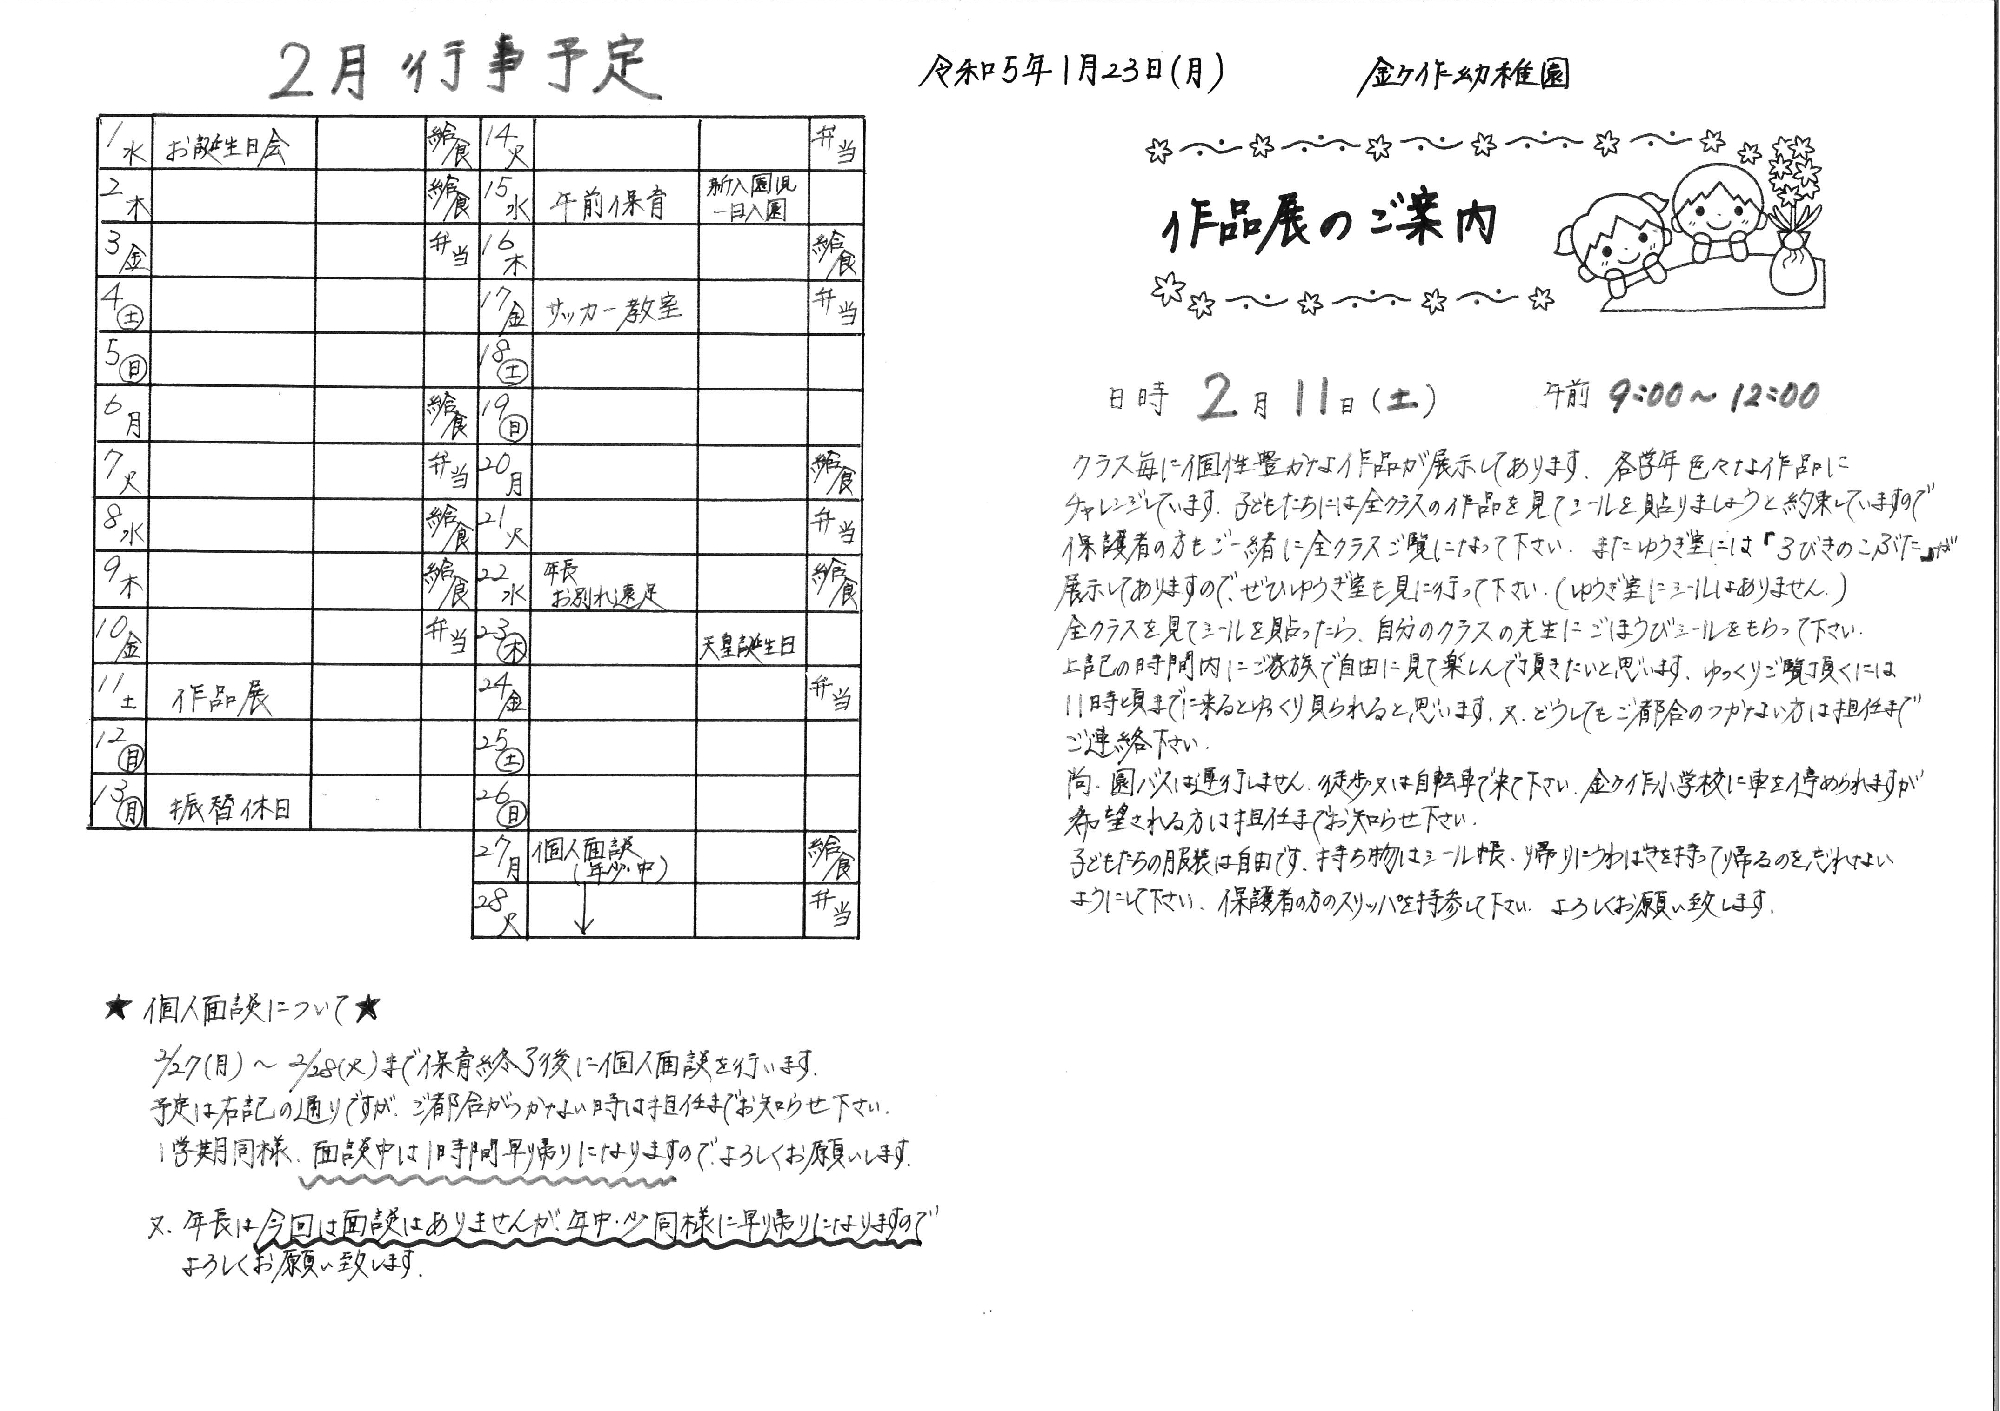 2月行事予定
1水 お誕生日会 給食
2木 給食
3金 弁当
4土
5日
6月 給食
7火 弁当
8水 給食
9木 給食
10金 弁当
11土 作品展
12日
13月 振替休日
14火 弁当
15水 午前保育 新入園児一日入園
16木 給食
17金 サッカー教室 弁当
18土
19日
20月 給食
21火 弁当
22水 年長お別れ遠足 給食
23木 天皇誕生日
24金 弁当
25土
26日
27月 個人面談(年少・中) 給食
28火 ↓ 弁当
★個人面談について★
2/27(月)～2/28(火)まで保育終了後に個人面談を行います。
予定は右記の通りですが、ご都合がつかない時は担任までお知らせ下さい。
1学期同様、面談中は1時間早り帰りになりますので、よろしくお願いします。
又、年長は今回は面談はありませんが、年中・少同様に早り帰りになりますので
よろしくお願い致します。
令和5年1月23日(月) 金ケ作幼稚園
作品展のご案内
日時 2月11日(土) 午前 9:00～12:00
クラス毎に個性豊かな作品が展示してあります。各学年色々な作品に
チャレンジしています。子どもたちには全クラスの作品を見てシールを貼りましょうと約束していますので
保護者の方もご一緒に全クラスご覧になって下さい。またゆうぎ室には『3びきのこぶた』が
展示してありますので、ぜひゆうぎ室も見に行って下さい。(ゆうぎ室にシールはありません。)
全クラスを見てシールを貼ったら、自分のクラスの先生にごほうびシールをもらって下さい。
上記の時間内にご家族で自由に見て楽しんで頂きたいと思います。ゆっくりご覧頂くには
11時頃までに来るとゆっくり見られると思います。又、どうしてもご都合のつかない方は担任まで
ご連絡下さい。
尚、園バスは運行しません。徒歩又は自転車で来て下さい。金ケ作小学校に車を停められますが
希望される方は担任までお知らせ下さい。
子どもたちの服装は自由です。持ち物はシール帳、帰りにうわばきを持って帰るのを忘れない
ようにして下さい。保護者の方のスリッパを持参して下さい。よろしくお願い致します。